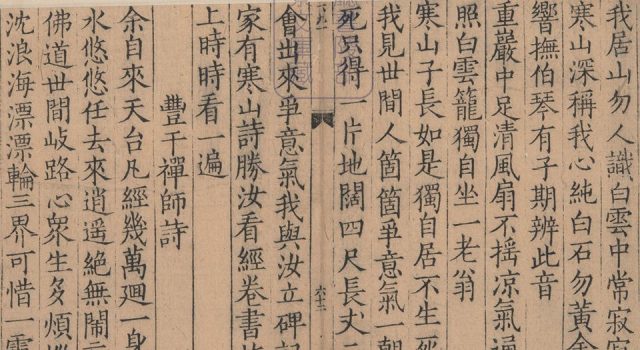 我居山勿人識白雲中常寂寂
寒山深稱我心純白石勿黃金
響撫伯琴有子期辨此音
重巖中足清風扇不搖涼氣通
照白雲籠獨自坐一老翁
寒山子長如是獨自居不生死
我見世間人箇箇爭意氣一朝
死只得一片地闊四尺長丈二
六十二
會出來爭意氣我與汝立碑記
家有寒山詩勝汝看經卷書放
上時時看一遍
豐干禪師詩
余自來天台凡經幾萬迴一身
水悠悠任去來逍遥絕無鬧
佛道世間岐路心衆生多煩
沈浪海漂漂輪三界可惜一靈